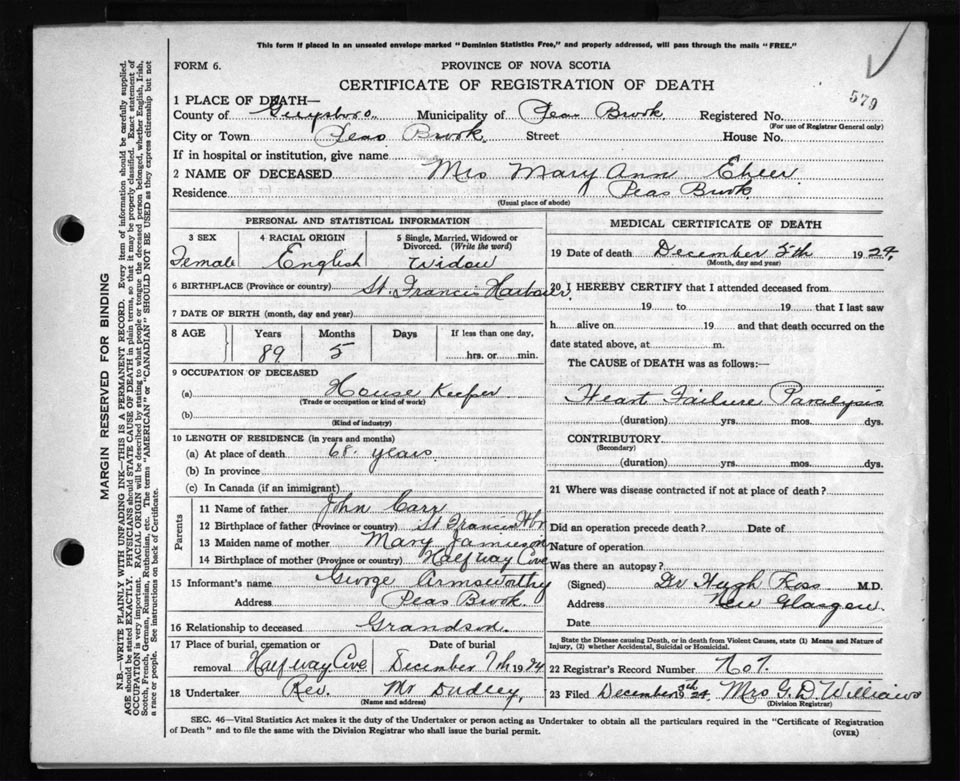 This form if placed in an unsealed envelope marked "Dominion Statistics Free," and properly addressed, will pass through the mails "FREE."
FORM 6.
PROVINCE OF NOVA SCOTIA
CERTIFICATE OF REGISTRATION OF DEATH
579
1 PLACE OF DEATH—
County of Guysboro Municipality of Peas Brook Registered No.
(For use of Registrar General only)
City or Town Peas Brook Street House No.
If in hospital or institution, give name
2 NAME OF DECEASED Mrs Mary Ann Eheer
Residence Peas Brook
(Usual place of abode)
PERSONAL AND STATISTICAL INFORMATION
3 SEX 4 RACIAL ORIGIN 5 Single, Married, Widowed or Divorced. (Write the word)
Female English Widow
6 BIRTHPLACE (Province or country) St. Francis Harbour
7 DATE OF BIRTH (month, day and year)
8 AGE Years Months Days If less than one day,
89 5 hrs. or min.
9 OCCUPATION OF DECEASED
(a) House Keeper
(Trade or occupation or kind of work)
(b)
(Kind of industry)
10 LENGTH OF RESIDENCE (in years and months)
(a) At place of death 68 years
(b) In province
(c) In Canada (if an immigrant)
Parents
11 Name of father John Carr
12 Birthplace of father (Province or country) St Francis Hbr
13 Maiden name of mother Mary Jamieson
14 Birthplace of mother (Province or country) Halfway Cove
15 Informant's name George Armsworthy
Address Peas Brook
16 Relationship to deceased Grandson
17 Place of burial, cremation or removal Halfway Cove
Date of burial December 7th 1924
18 Undertaker Rev. Mr Dudley,
(Name and address)
MEDICAL CERTIFICATE OF DEATH
19 Date of death December 5th 1924
(Month, day and year)
20 I HEREBY CERTIFY that I attended deceased from
19 to 19 that I last saw
h alive on 19 and that death occurred on the
date stated above, at m.
The CAUSE of DEATH was as follows:—
Heart Failure Paralysis
(duration) yrs. mos. dys.
CONTRIBUTORY
(Secondary)
(duration) yrs. mos. dys.
21 Where was disease contracted if not at place of death?
Did an operation precede death? Date of
Nature of operation
Was there an autopsy?
(Signed) Dr Hugh Ross M.D.
Address New Glasgow
Date
State the Disease causing Death, or in death from Violent Causes, state (1) Means and Nature of Injury, (2) whether Accidental, Suicidal or Homicidal.
22 Registrar's Record Number No 7.
23 Filed December 8th 1924 Mrs G. D. Williams
(Division Registrar)
SEC. 46—Vital Statistics Act makes it the duty of the Undertaker or person acting as Undertaker to obtain all the particulars required in the "Certificate of Registration
of Death" and to file the same with the Division Registrar who shall issue the burial permit.
(OVER)
MARGIN RESERVED FOR BINDING
N.B.—WRITE PLAINLY WITH UNFADING INK—THIS IS A PERMANENT RECORD. Every item of information should be carefully supplied.
AGE should be stated EXACTLY. PHYSICIANS should STATE CAUSE OF DEATH in plain terms, so that it may be properly classified. Exact statement of
OCCUPATION is very important. RACIAL ORIGIN will be described by stating to what people or tongue the deceased person belonged, whether English, Irish,
Scotch, French, German, Russian, Ruthenian, etc. The terms "AMERICAN" or "CANADIAN" SHOULD NOT BE USED as they express citizenship but not
a race or people. See instructions on back of Certificate.